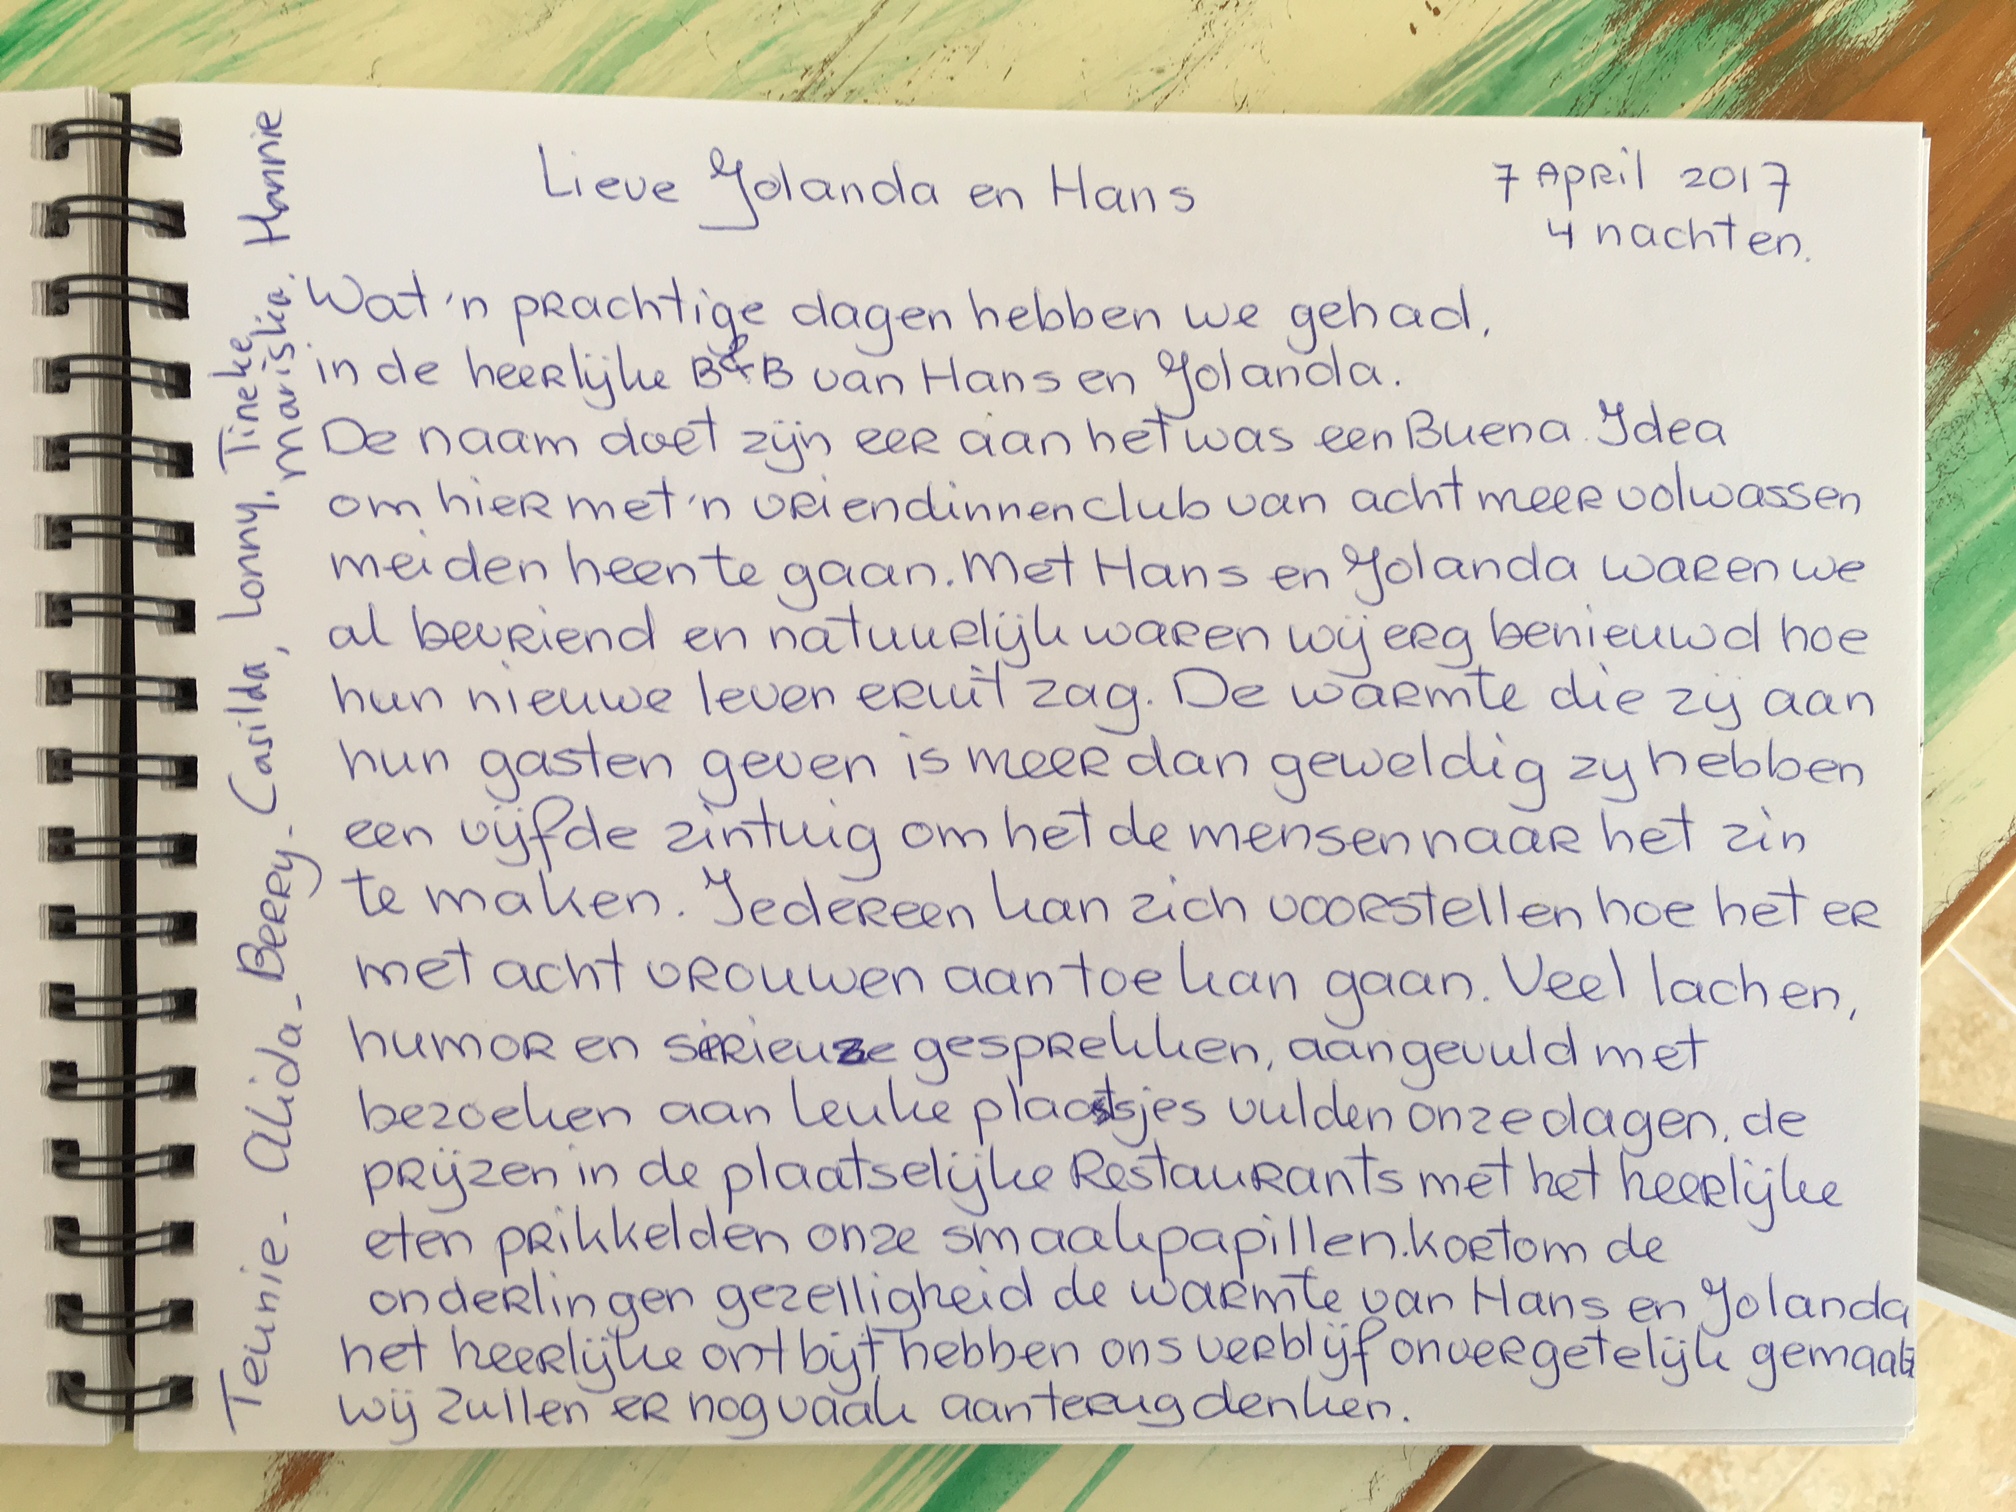 Lieve Yolanda en Hans
7 April 2017
4 nachten.
Wat 'n prachtige dagen hebben we gehad,
in de heerlijke B&B van Hans en Yolanda.
De naam doet zijn eer aan het was een Buena Idea
om hier met 'n vriendinnenclub van acht meer volwassen
meiden heen te gaan. Met Hans en Yolanda waren we
al bevriend en natuurlijk waren wij erg benieuwd hoe
hun nieuwe leven eruit zag. De warmte die zij aan
hun gasten geven is meer dan geweldig zy hebben
een vijfde zintuig om het de mensen naar het zin
te maken. Iedereen kan zich voorstellen hoe het er
met acht vrouwen aan toe kan gaan. Veel lachen,
humor en serieuze gesprekken, aangevuld met
bezoeken aan leuke plaatsjes vulden onze dagen, de
prijzen in de plaatselijke Restaurants met het heerlijke
eten prikkelden onze smaakpapillen. kortom de
onderlingen gezelligheid de warmte van Hans en Yolanda
het heerlijke ontbijt hebben ons verblijf onvergetelijk gemaakt
wij zullen er nog vaak aan terug denken.
Teunie. Alida - Berry. Casilda, Lonny, Tineke
Mariska. Hannie